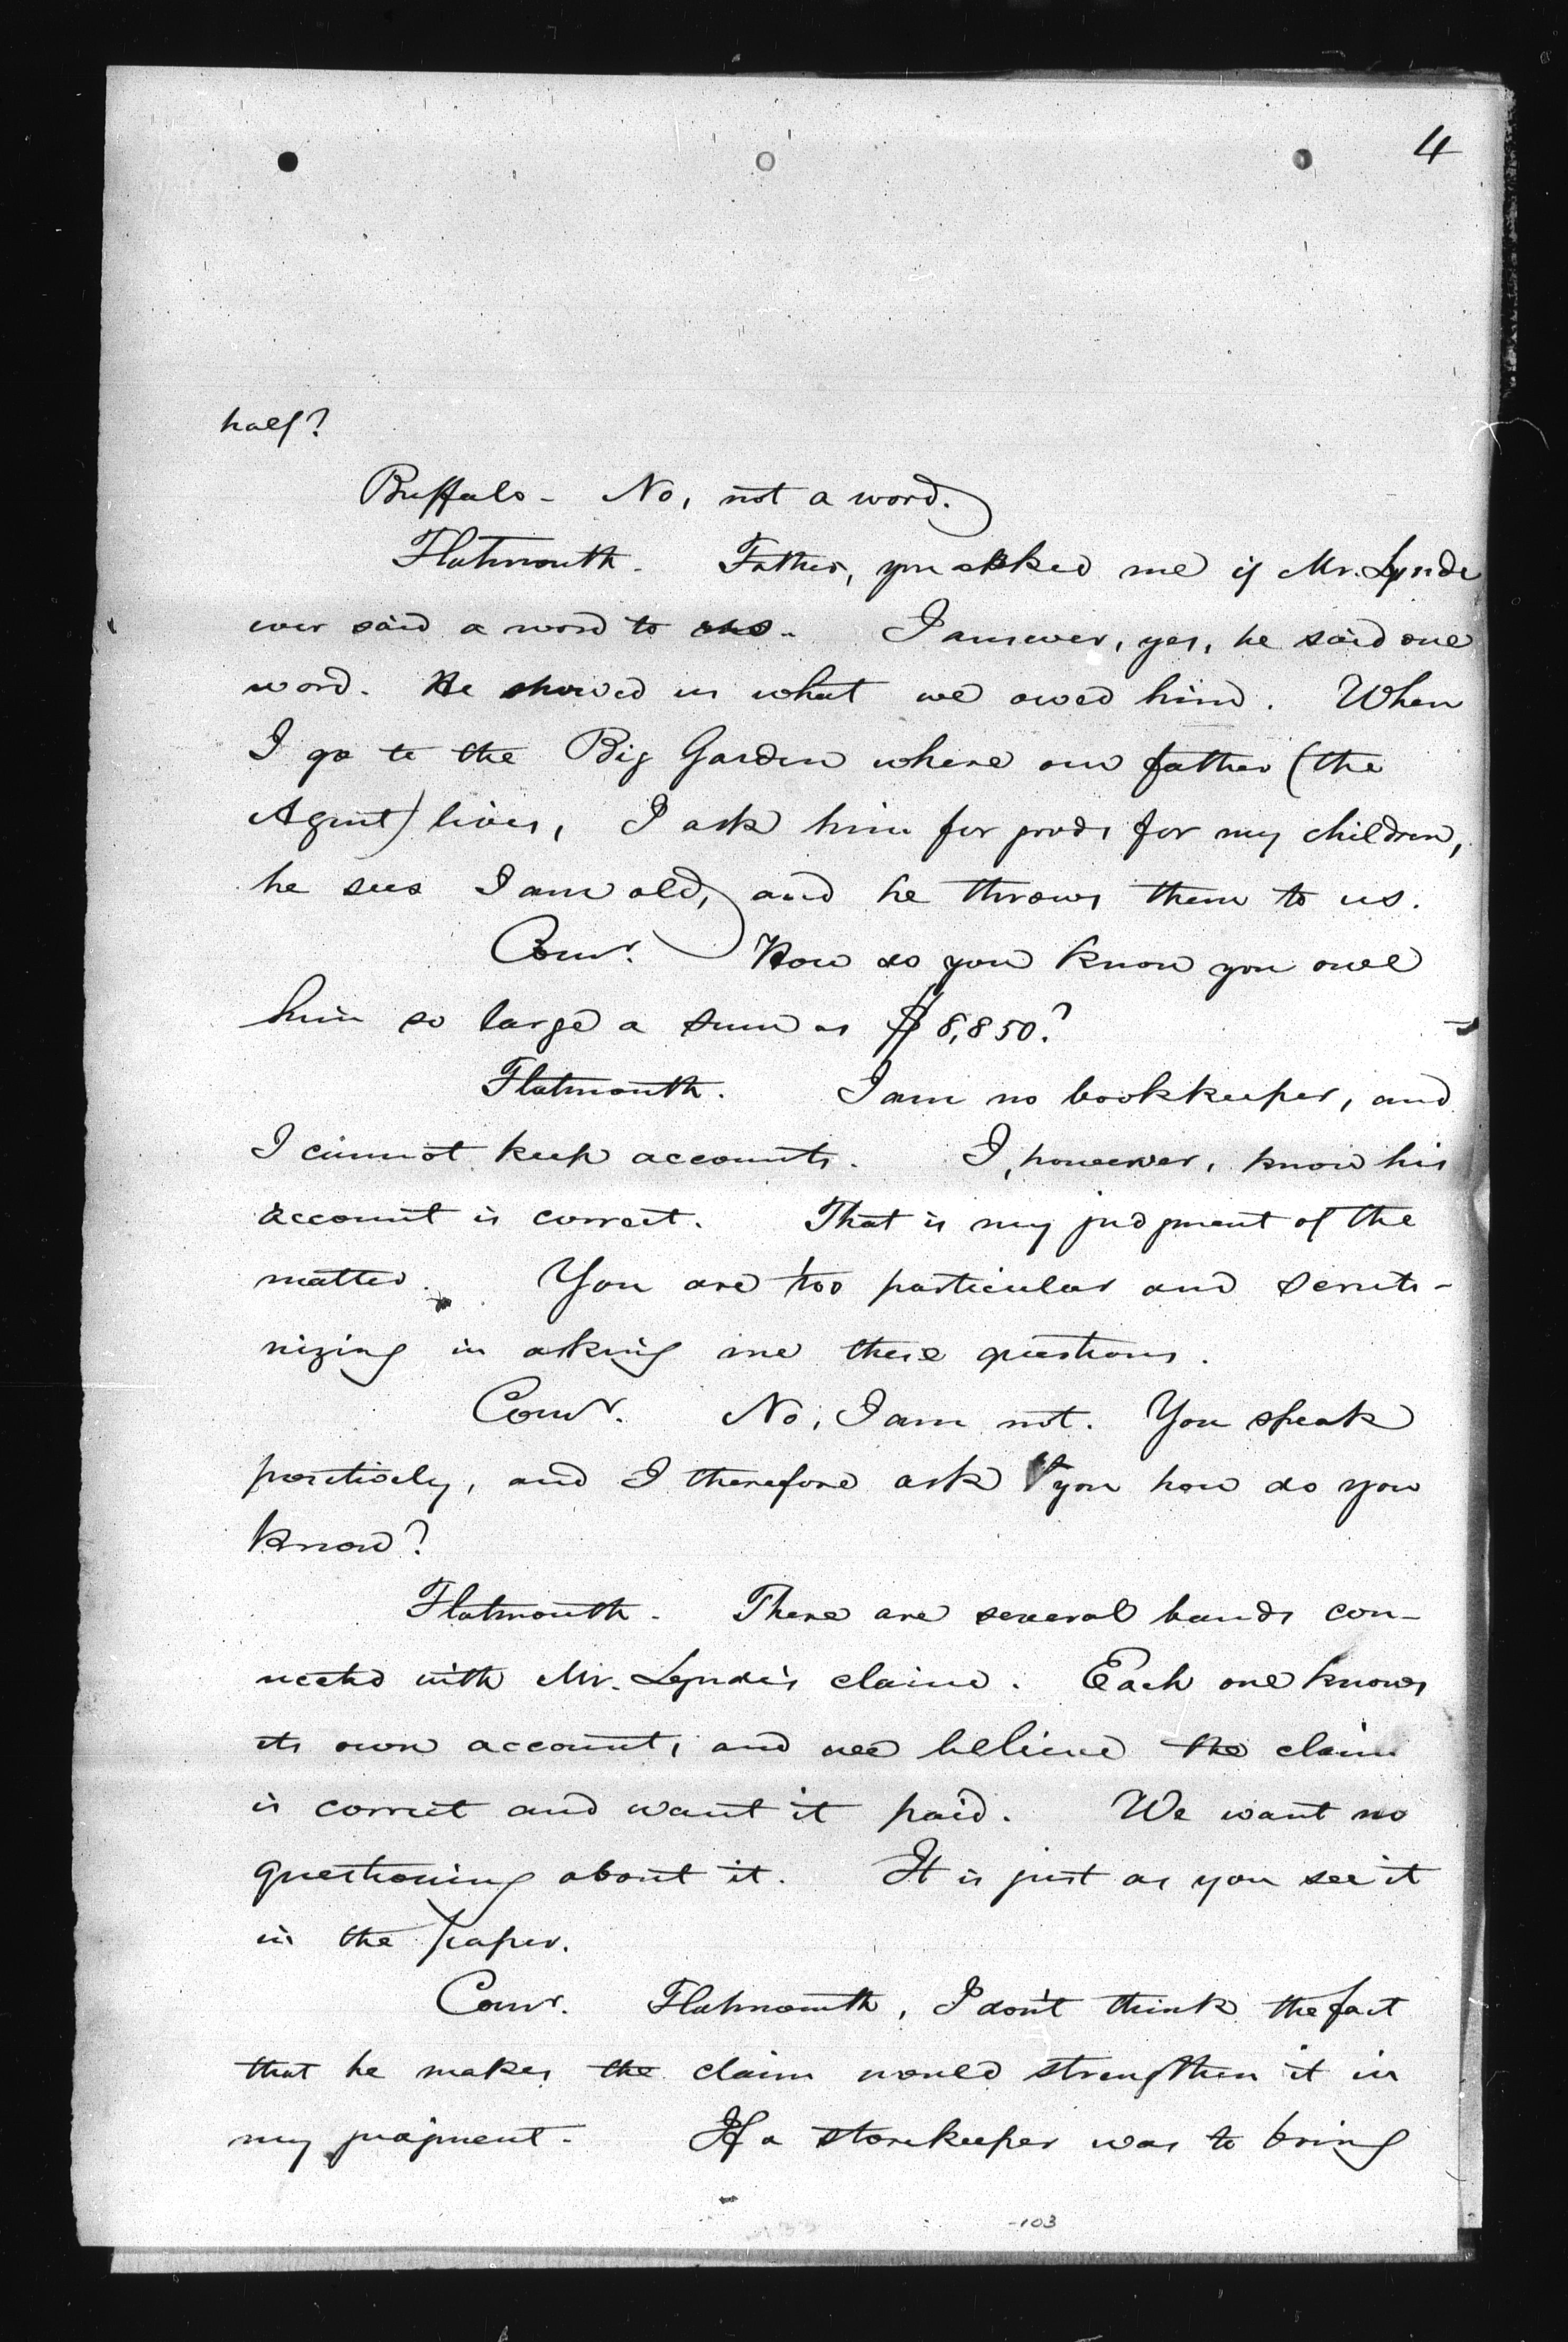 4
half?
Buffalo - No, not a word.
Flatmouth - Father, you asked me if Mr. Lynde
ever said a word to us - I answer, yes, he said one
word. He showed us what we owed him. When
I go to the Big Garden where our father (the
Agent) lives, I ask him for goods for my children,
he sees I am old, and he throws them to us.
Comr. How do you know you owe
him so large a sum as $8,850?
Flatmouth. I am no bookkeeper, and
I cannot keep accounts. I, however, know his
account is correct. That is my judgment of the
matter. You are too particular and scruti-
nizing in asking me these questions.
Comr. No, I am not. You speak
positively, and I therefore ask you how do you
know?
Flatmouth - There are several bands con-
nected with Mr. Lynde's claim. Each one knows
its own account, and we believe the claim
is correct and want it paid. We want no
questioning about it. It is just as you see it
in the paper.
Comr. Flatmouth, I don't think the fact
that he makes the claim would strengthen it in
my judgment - If a storekeeper was to bring
-103